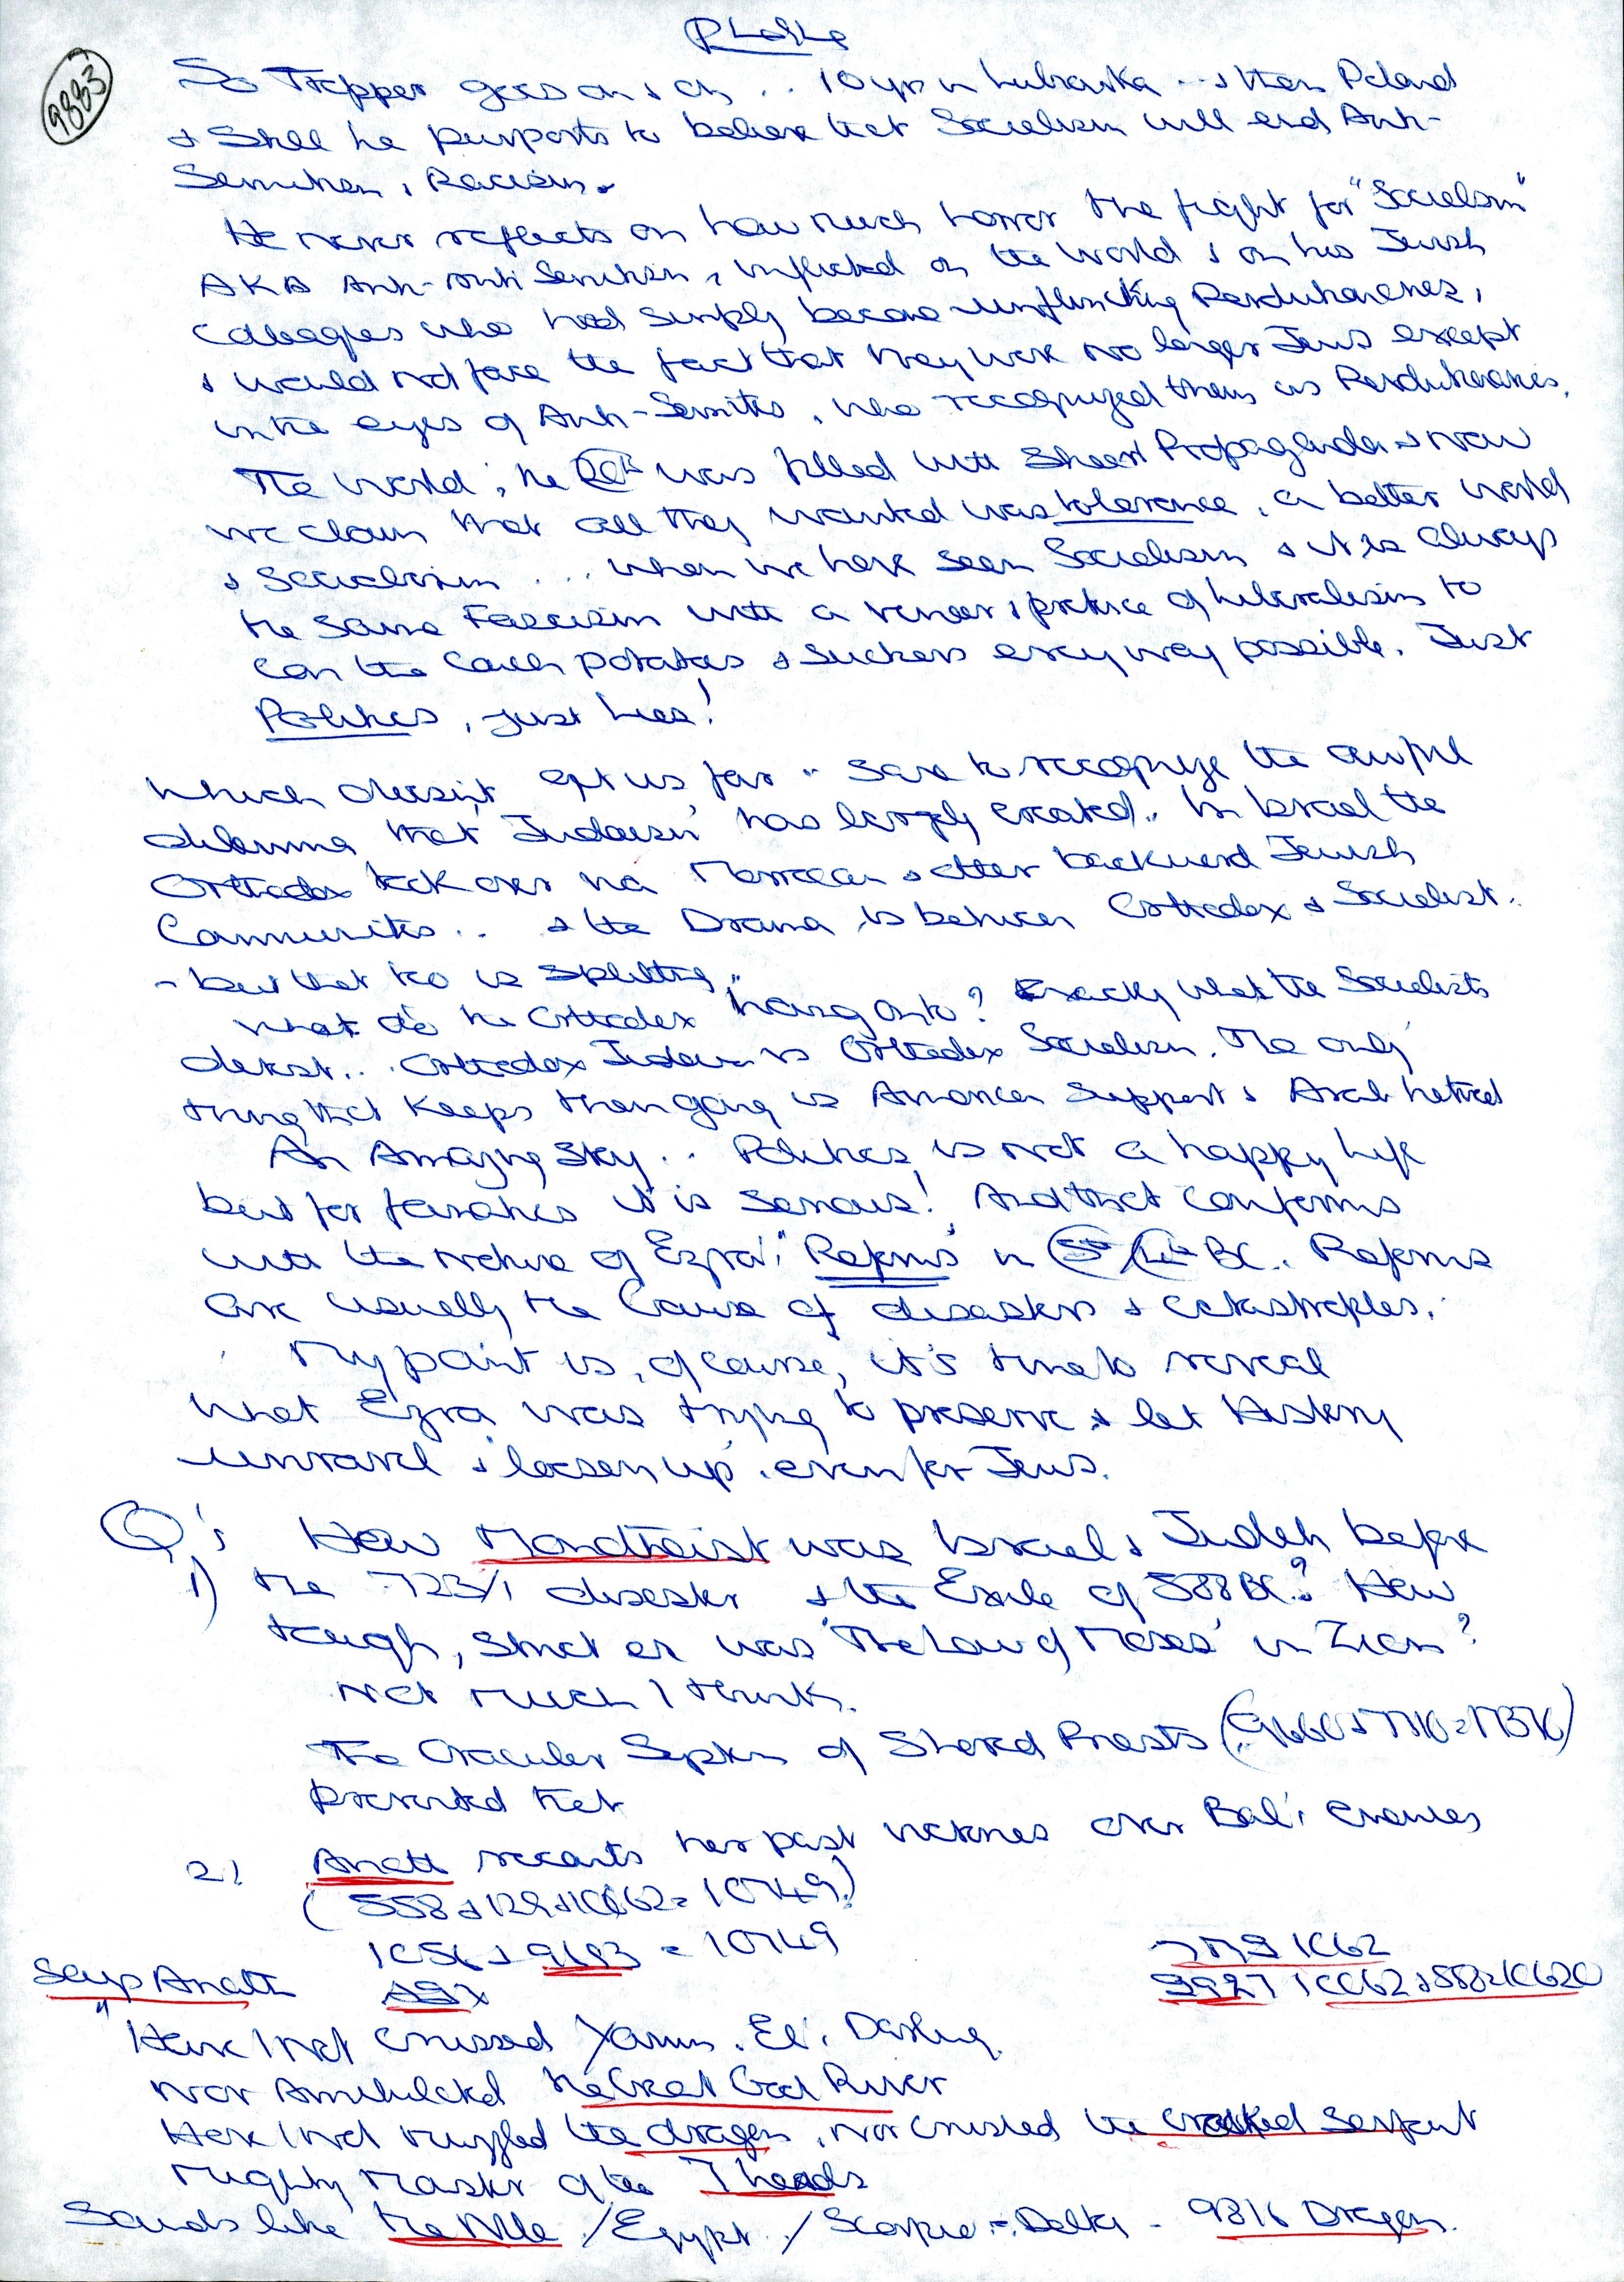 9883
So Trepper goes on & on .. 10 yrs in Lubianka ... & then Poland
& Still he purports to believe that Socialism will end Anti-
Semitism, Racism.
He never reflects on how much horror the fight for "Socialism"
AKA Anti-anti Semitism, inflicted on the World & on his Jewish
Colleagues who had simply become unflinching
& would not face the fact that they were no longer Jews except
in the eyes of Anti-Semites, who recognized them as
The World, the was filled with Sheer Propaganda & now
we claim that all they wanted was tolerance, a better world
& Socialism ... when we have seen Socialism & it is always
the same Fascism with a veneer & pretence of liberalism to
con the couch potatoes & suckers every way possible. Just
Politics, just Lies!
Which doesn't get us far .. Save to recognize the awful
dilemma that 'Judaism' has largely created. In Israel the
Orthodox took over via Moroccan & other backward Jewish
Communities .. & the Drama is between Orthodox & Socialist.
- but that too is splitting.
What do the Orthodox hang onto? Exactly what the Socialists
detest .. Orthodox Judaism vs Orthodox Socialism. The only
thing that keeps them going is American Support & Arab hatred
An Amazing Story .. Politics is not a happy life
but for fanatics it is serious! And that conforms
with the nature of Ezra's "Reforms" in 5th/4th BC. Reforms
are usually the Cause of disasters & catastrophes.
My point is, of course, it's time to reveal
what Ezra was trying to preserve & let History
unravel & loosen up, even for Jews.
Q's How Monotheist was Israel & Judah before
1) the 723/1 disaster & the Exile of 588 BC? How
tough, strict etc was 'The Law of Moses' in Zion?
Not much I think.
The Oracular System of Shared Priests (9660 + 7716 = 17376)
prevented that
2) Anath recounts her past victories over Bal's enemies
(558 + 129 + 10062 = 10749)
1056 + 9693 = 10749
10062 + 558 = 10620
Says Anath
"Have I not crushed Yamm, El's Darling
Nor Annihilated the Great God River
Have I not muzzled the dragon, nor crushed the crooked Serpent
Mighty Master of the 7 heads
Sounds like the Nile / Egypt / Scorpio = Delta - 9816 Dragon.